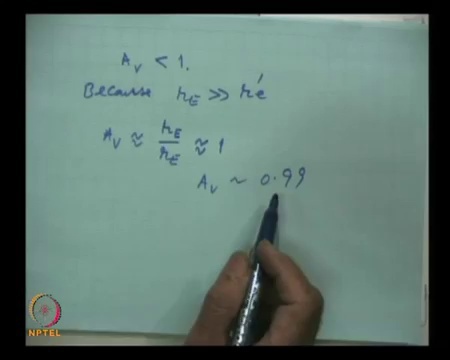 A_v < 1.
Because r_E >> r'e
A_v ≈ r_E/r_E ≈ 1
A_v ~ 0.99
NPTEL